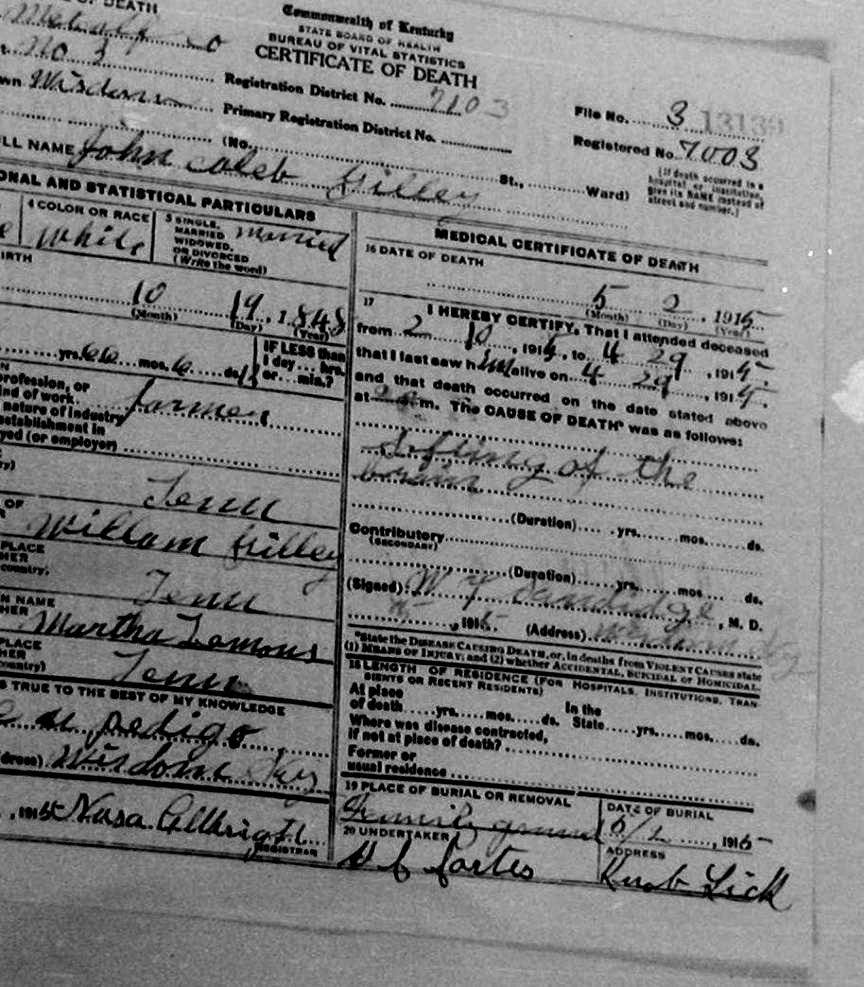 OF DEATH
Metcalf Co
No 3
Wisdom
Commonwealth of Kentucky
STATE BOARD OF HEALTH
BUREAU OF VITAL STATISTICS
CERTIFICATE OF DEATH
Registration District No. 7103
Primary Registration District No.
File No. 3 13139
Registered No. 7003
(No. St., Ward)
(If death occurred in a
hospital or institution,
give its NAME instead of
street and number.)
FULL NAME John Caleb Gilley
ONAL AND STATISTICAL PARTICULARS
4 COLOR OR RACE
White
5 SINGLE,
MARRIED
WIDOWED,
OR DIVORCED
(Write the word)
married
BIRTH
10 19, 1848
(Month) (Day) (Year)
yrs. 66 mos. 6 ds.
IF LESS than
1 day... hrs.
or... min.?
profession, or
kind of work farmer
nature of industry
establishment in
yed (or employer)
Tenn
OF William Gilley
PLACE
HER
country.
Tenn
N NAME
HER Martha Lemons
PLACE
HER
country)
Tenn
S TRUE TO THE BEST OF MY KNOWLEDGE
pedigo
dress) Wisdom Ky
, 1915 Allbright
REGISTRAR
MEDICAL CERTIFICATE OF DEATH
16 DATE OF DEATH
5 2, 1915
(Month) (Day) (Year)
17 I HEREBY CERTIFY, That I attended deceased
from 2 10, 1915, to 4 29, 1915.
that I last saw him alive on 4 29, 1915.
and that death occurred on the date stated above
at m. The CAUSE OF DEATH* was as follows:
Softing of the
brain
(Duration) yrs. mos. ds.
Contributory
(SECONDARY)
(Duration) yrs. mos. ds.
(Signed) , M. D.
, 1915 (Address)
*State the DISEASE CAUSING DEATH, or, in deaths from VIOLENT CAUSES state
(1) MEANS OF INJURY; and (2) whether ACCIDENTAL, SUICIDAL or HOMICIDAL.
18 LENGTH OF RESIDENCE (FOR HOSPITALS, INSTITUTIONS, TRAN-
SIENTS OR RECENT RESIDENTS)
At place In the
of death yrs. mos. ds. State yrs. mos. ds.
Where was disease contracted,
if not at place of death?
Former or
usual residence
19 PLACE OF BURIAL OR REMOVAL
Family ground
DATE OF BURIAL
, 1915
20 UNDERTAKER
ADDRESS
Knob Lick